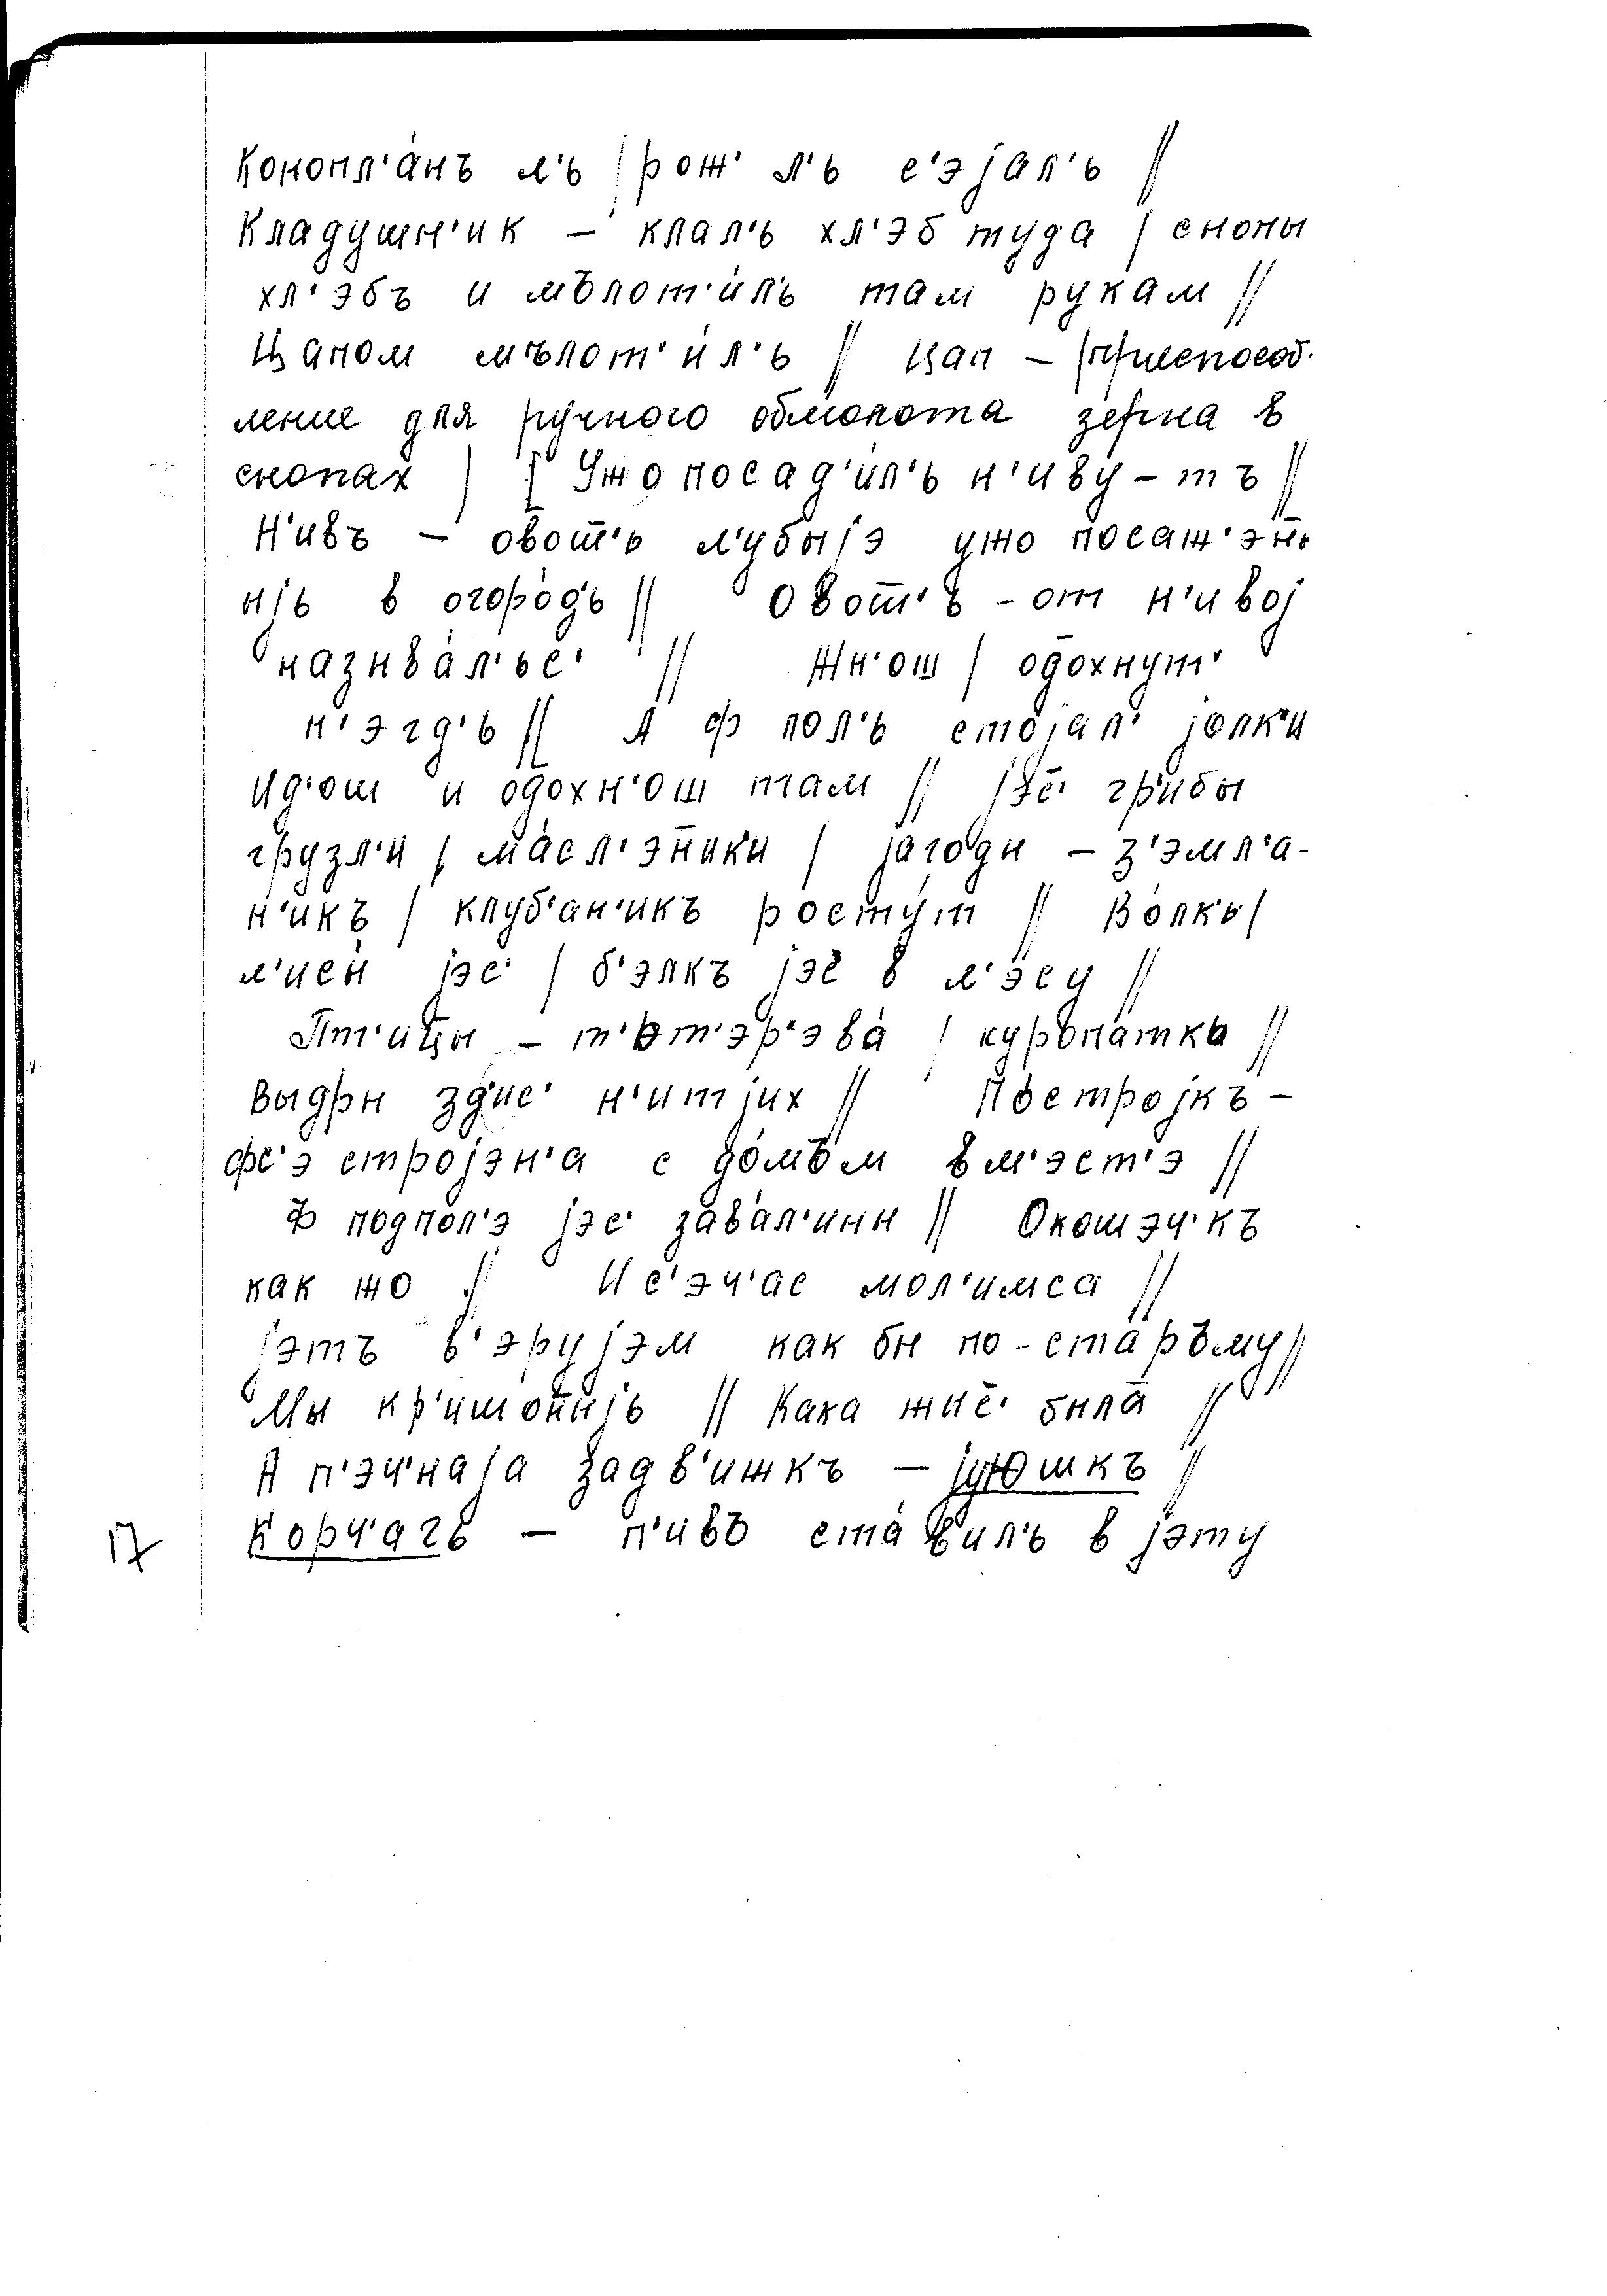 Конопл'а́нъ л'ь | рож' л'ь с'эјал'ь ||
Кладушн'ик – клал'ь хл'эб туда | снопы
хл'эбъ и мълот'и́л'ь там рукам ||
Цапом мълот'и́л'ь || цап – |приспособ-
ление для ручного обмолота зерна в
снопах | [ Ужо посад'и́л'ь н'иву-тъ ||
Н'ивъ – овот̄'ь л'убыјэ ужо посаж'эн̄ы
ыјь в огоро́д'ь || Овот̄'ь-от н'ивој
называ́л'ьс' || Жн'ош | одохнут'
н'эгд'ь || А ф пол'ь стојал' јолк'и
Ид'ош и од̄охн'ош там || јэс̄' гр'ибы
грузл'и́ | ма́сл'эн̄ики | јагоды – з'эмл'а-
н'икъ | клуб'ан'икъ росту́т || Во́лкы |
л'исы́ јэс' | б'элкъ јэс̄ в л'эсу ||
Пт'ицы – т'ьт'эр'эва́ | куръпа́ткы ||
Выдры зд'ис' н'итјих || Постројкъ –
фс'э стројэн'а с до́мъм вм'эст'э ||
Ф подпол'э јэс' зава́л'ины || Окошэч'къ
как жо || И с'эч'ас мол'имса ||
јэтъ в'эрујэм как бы по-ста́ръму ||
Мы кр'ишон̄ыјь || Кака жыс̄' была́ ||
А п'эч'наја задв'ижкъ – јуюшкъ ||
17 Корч'агь – п'ивъ ста́в'ил'ь в јэту